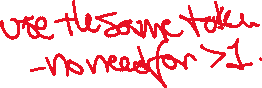 use the same token
- no need for >1.